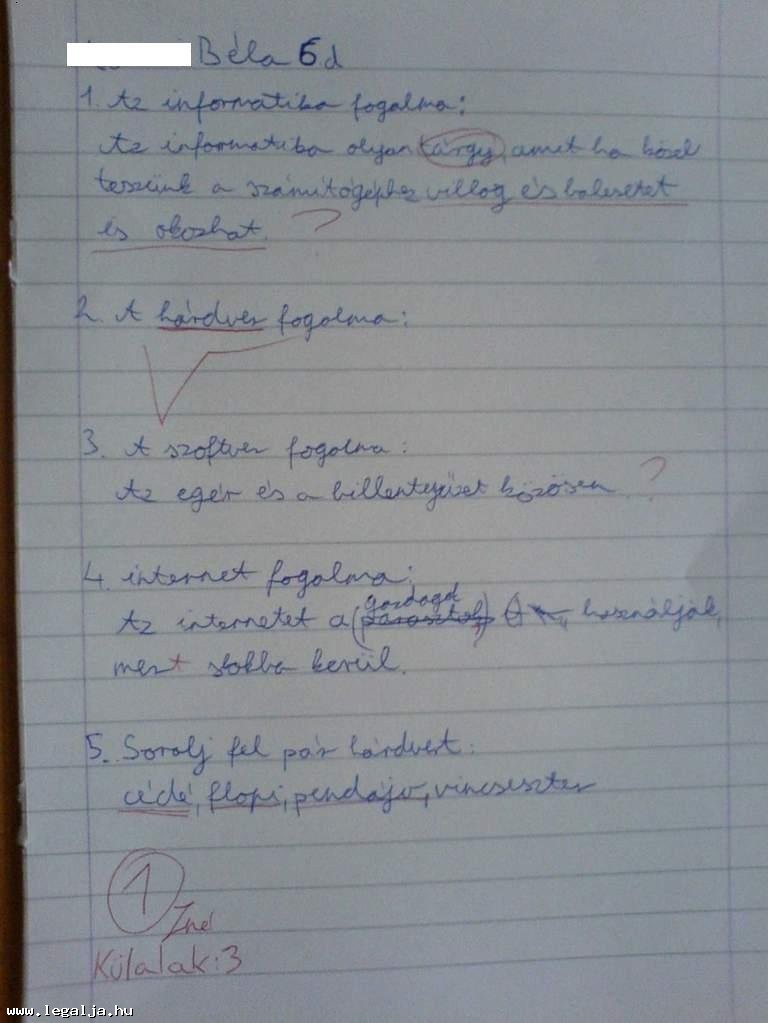 Béla 6d
1. Az informatika fogalma:
Az informatika olyan tárgy, amit ha közel
teszünk a számítógéphez villog és balesetet
is okozhat. ?
2. A hárdver fogalma:
3. A szoftver fogalma:
Az egér és a billentyűzet közösen. ?
4. internet fogalma:
gazdagok
Az internetet a (parasztok) használják,
mert sokba kerül.
5. Sorolj fel pár hárdvert:
cédé, flopi, pendájv, vincseszter
1
Zné
Külalak: 3
www.legalja.hu